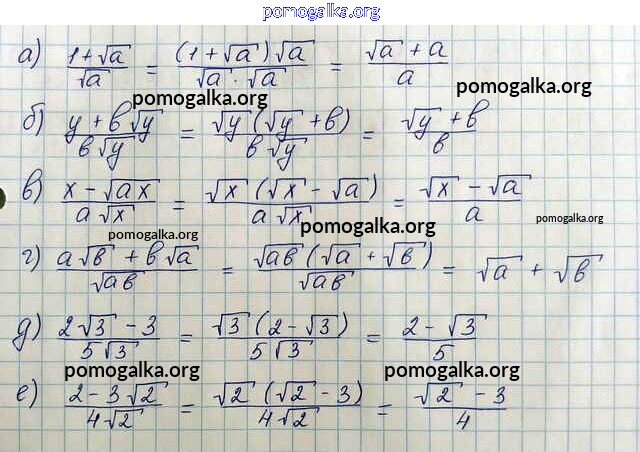 pomogalka.org
а) (1+√a)/√a = ((1+√a)√a)/(√a · √a) = (√a + a)/a
pomogalka.org
pomogalka.org
б) (y + b√y)/(b√y) = (√y (√y + b))/(b√y) = (√y + b)/b
в) (x - √ax)/(a√x) = (√x (√x - √a))/(a√x) = (√x - √a)/a
pomogalka.org
pomogalka.org
pomogalka.org
г) (a√b + b√a)/√ab = (√ab (√a + √b))/√ab = √a + √b
д) (2√3 - 3)/(5√3) = (√3 (2 - √3))/(5√3) = (2 - √3)/5
pomogalka.org
pomogalka.org
е) (2 - 3√2)/(4√2) = (√2 (√2 - 3))/(4√2) = (√2 - 3)/4